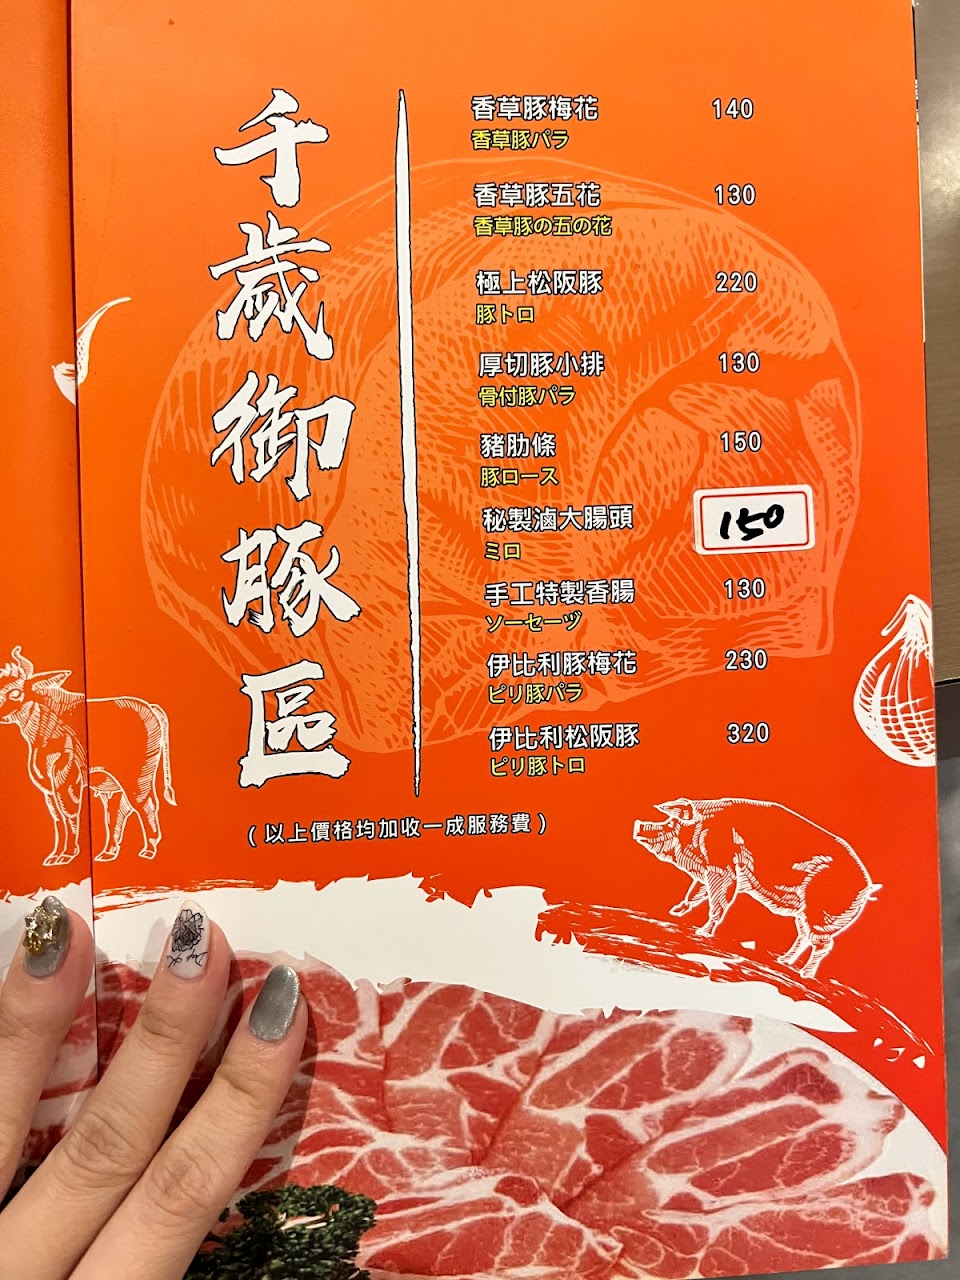 千歲御豚區
香草豚梅花 140
香草豚パラ
香草豚五花 130
香草豚の五の花
極上松阪豚 220
豚トロ
厚切豚小排 130
骨付豚パラ
豬肋條 150
豚ロース
秘製滷大腸頭 150
ミロ
手工特製香腸 130
ソーセーヅ
伊比利豚梅花 230
ピリ豚パラ
伊比利松阪豚 320
ピリ豚トロ
(以上價格均加收一成服務費)